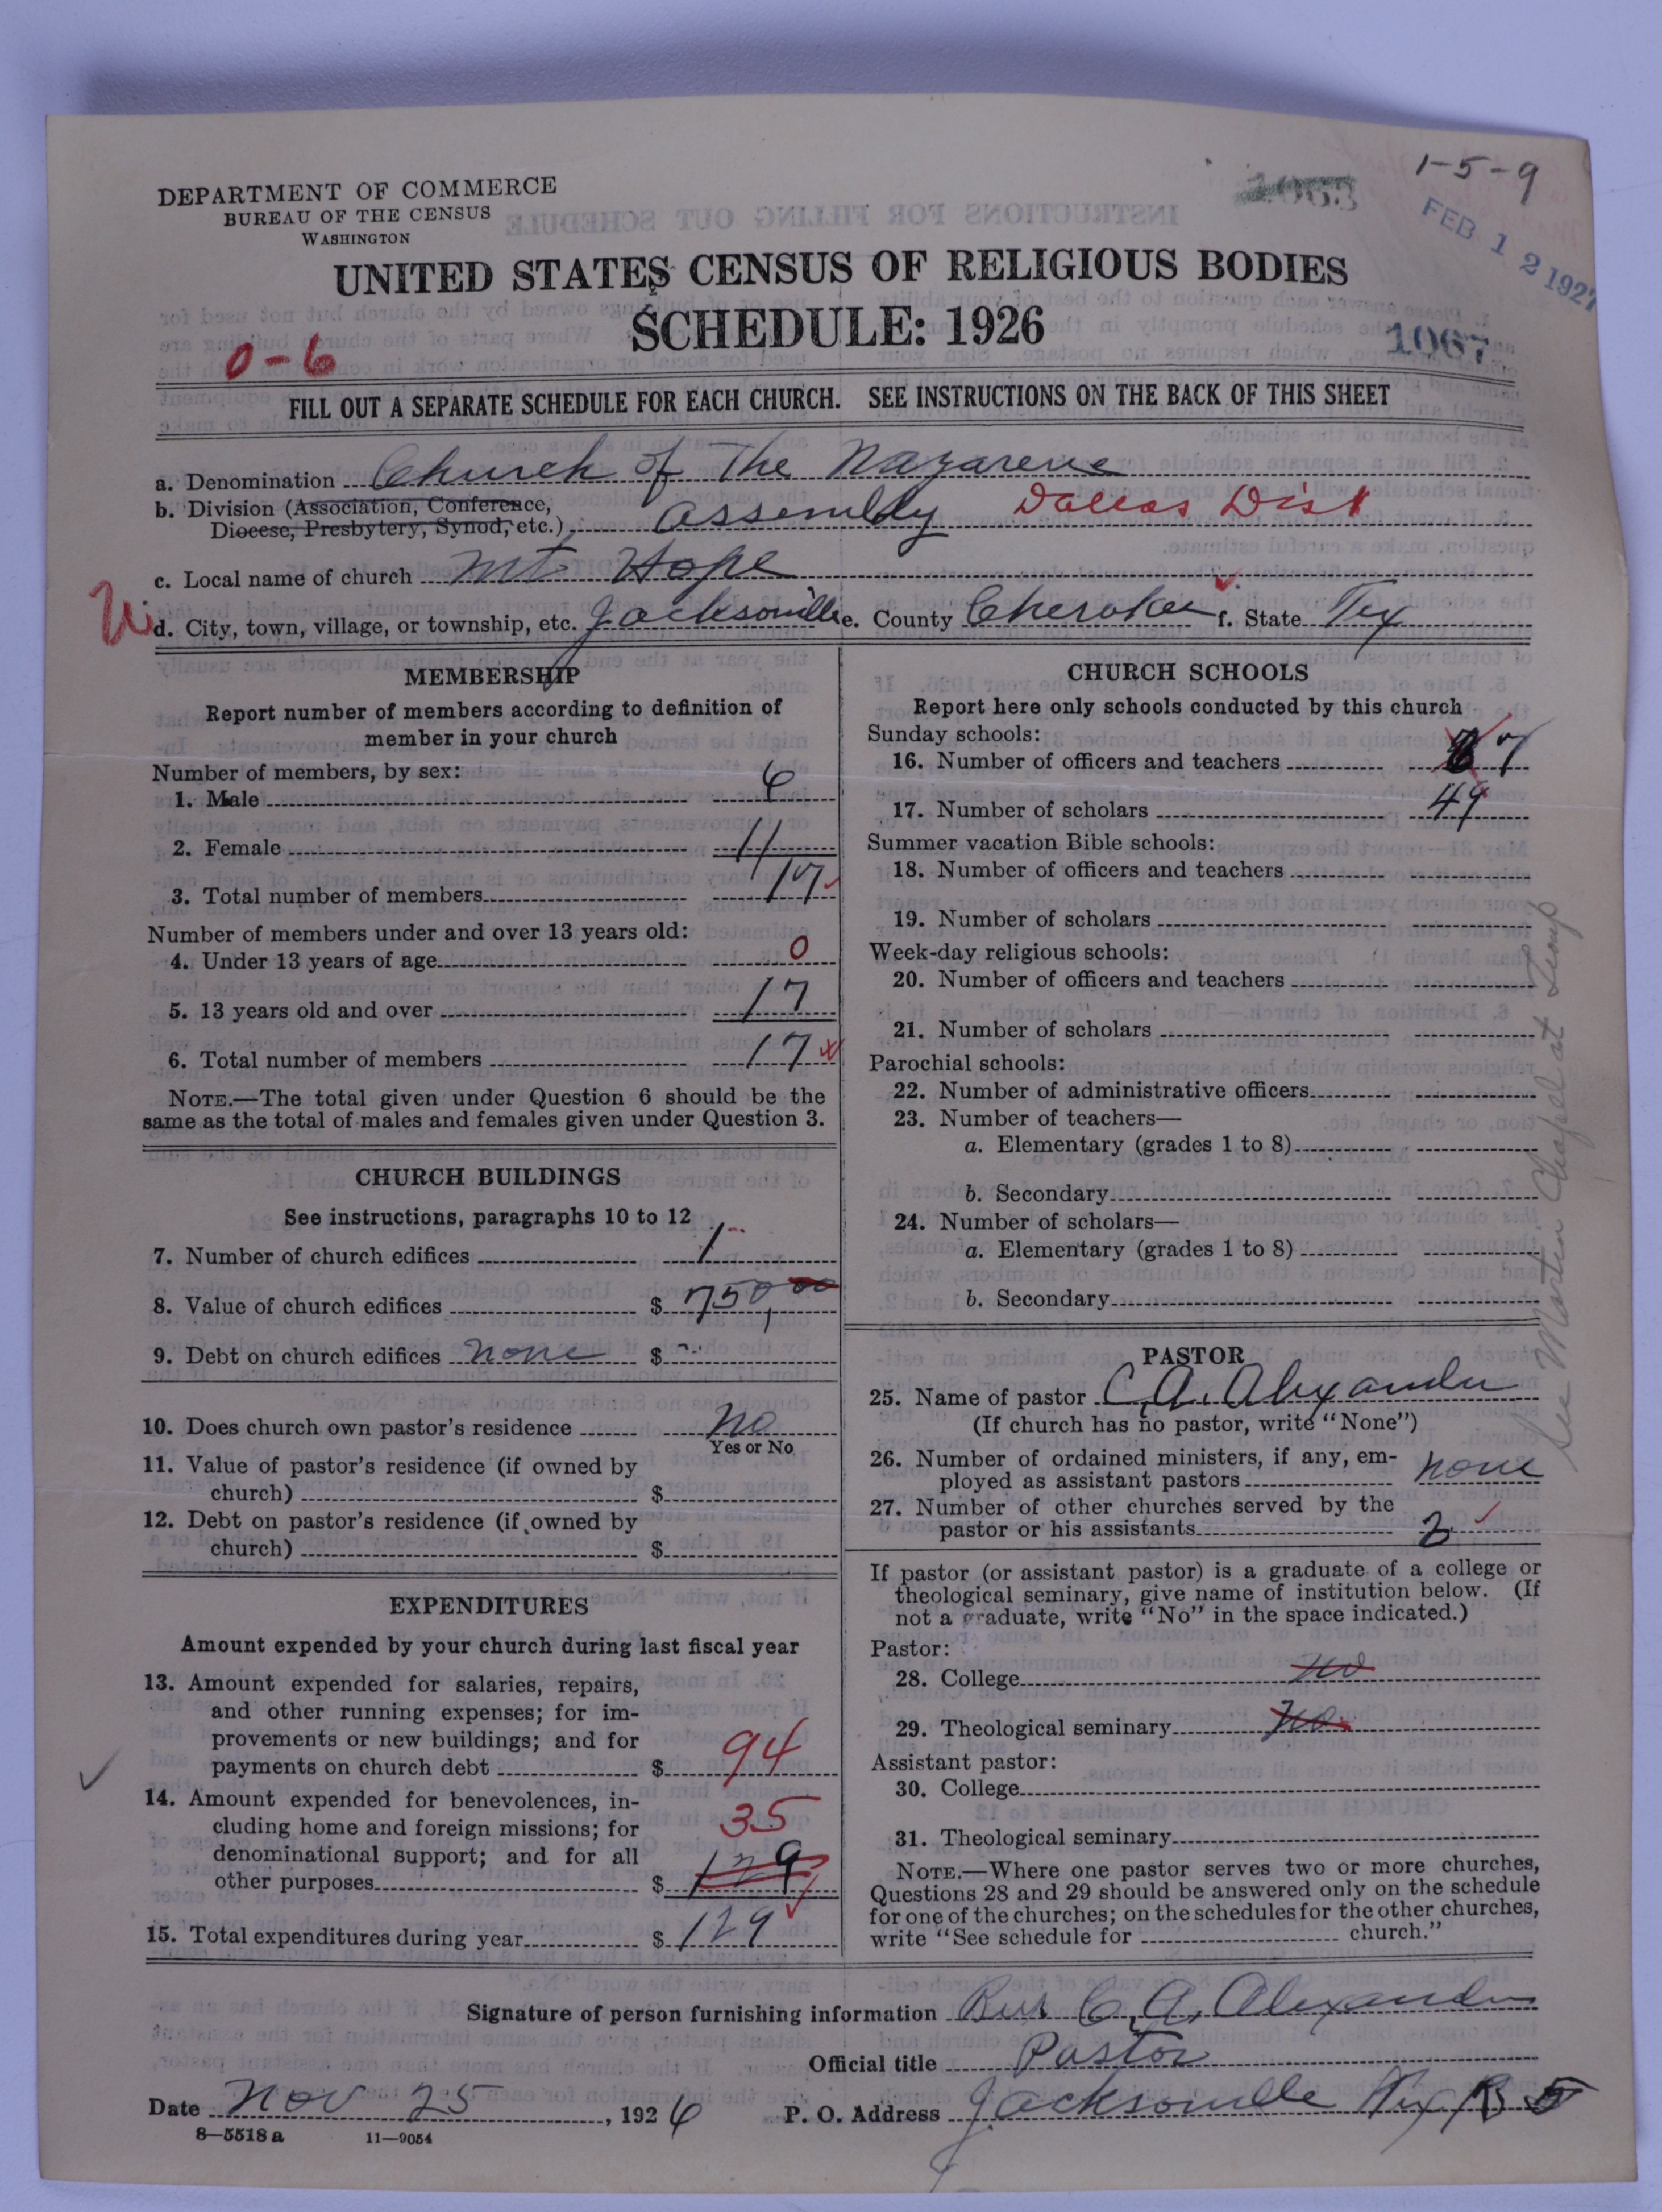 1-5-9
DEPARTMENT OF COMMERCE
BUREAU OF THE CENSUS
WASHINGTON
1063
FEB 12 1927
UNITED STATES CENSUS OF RELIGIOUS BODIES
SCHEDULE: 1926
1067
0-6
FILL OUT A SEPARATE SCHEDULE FOR EACH CHURCH. SEE INSTRUCTIONS ON THE BACK OF THIS SHEET
a. Denomination Church of The Nazarene
b. Division (Association, Conference,
Diocese, Presbytery, Synod, etc.) Assembly Dallas Dist
c. Local name of church Mt Hope
d. City, town, village, or township, etc. Jacksonville e. County Cherokee f. State Tex
MEMBERSHIP
Report number of members according to definition of
member in your church
Number of members, by sex:
1. Male 6
2. Female 11
3. Total number of members 17
Number of members under and over 13 years old:
4. Under 13 years of age 0
5. 13 years old and over 17
6. Total number of members 17
NOTE.—The total given under Question 6 should be the
same as the total of males and females given under Question 3.
CHURCH BUILDINGS
See instructions, paragraphs 10 to 12
7. Number of church edifices 1
8. Value of church edifices $ 750,00
9. Debt on church edifices none $
10. Does church own pastor's residence No
Yes or No
11. Value of pastor's residence (if owned by
church) $
12. Debt on pastor's residence (if owned by
church) $
EXPENDITURES
Amount expended by your church during last fiscal year
13. Amount expended for salaries, repairs,
and other running expenses; for im-
provements or new buildings; and for
payments on church debt $ 94
14. Amount expended for benevolences, in-
cluding home and foreign missions; for 35
denominational support; and for all
other purposes $ 129
15. Total expenditures during year $ 129
CHURCH SCHOOLS
Report here only schools conducted by this church
Sunday schools:
16. Number of officers and teachers 7
17. Number of scholars 49
Summer vacation Bible schools:
18. Number of officers and teachers
19. Number of scholars
Week-day religious schools:
20. Number of officers and teachers
21. Number of scholars
Parochial schools:
22. Number of administrative officers
23. Number of teachers—
a. Elementary (grades 1 to 8)
b. Secondary
24. Number of scholars—
a. Elementary (grades 1 to 8)
b. Secondary
PASTOR
25. Name of pastor C. A. Alexander
(If church has no pastor, write "None")
26. Number of ordained ministers, if any, em-
ployed as assistant pastors none
27. Number of other churches served by the
pastor or his assistants 2
If pastor (or assistant pastor) is a graduate of a college or
theological seminary, give name of institution below. (If
not a graduate, write "No" in the space indicated.)
Pastor:
28. College no
29. Theological seminary No
Assistant pastor:
30. College
31. Theological seminary
NOTE.—Where one pastor serves two or more churches,
Questions 28 and 29 should be answered only on the schedule
for one of the churches; on the schedules for the other churches,
write "See schedule for church."
See Martin Chapel at
Signature of person furnishing information Rev C. A. Alexander
Official title Pastor
Date Nov 25, 1926 P. O. Address Jacksonville Tex R 5
8—5518 a 11—9054